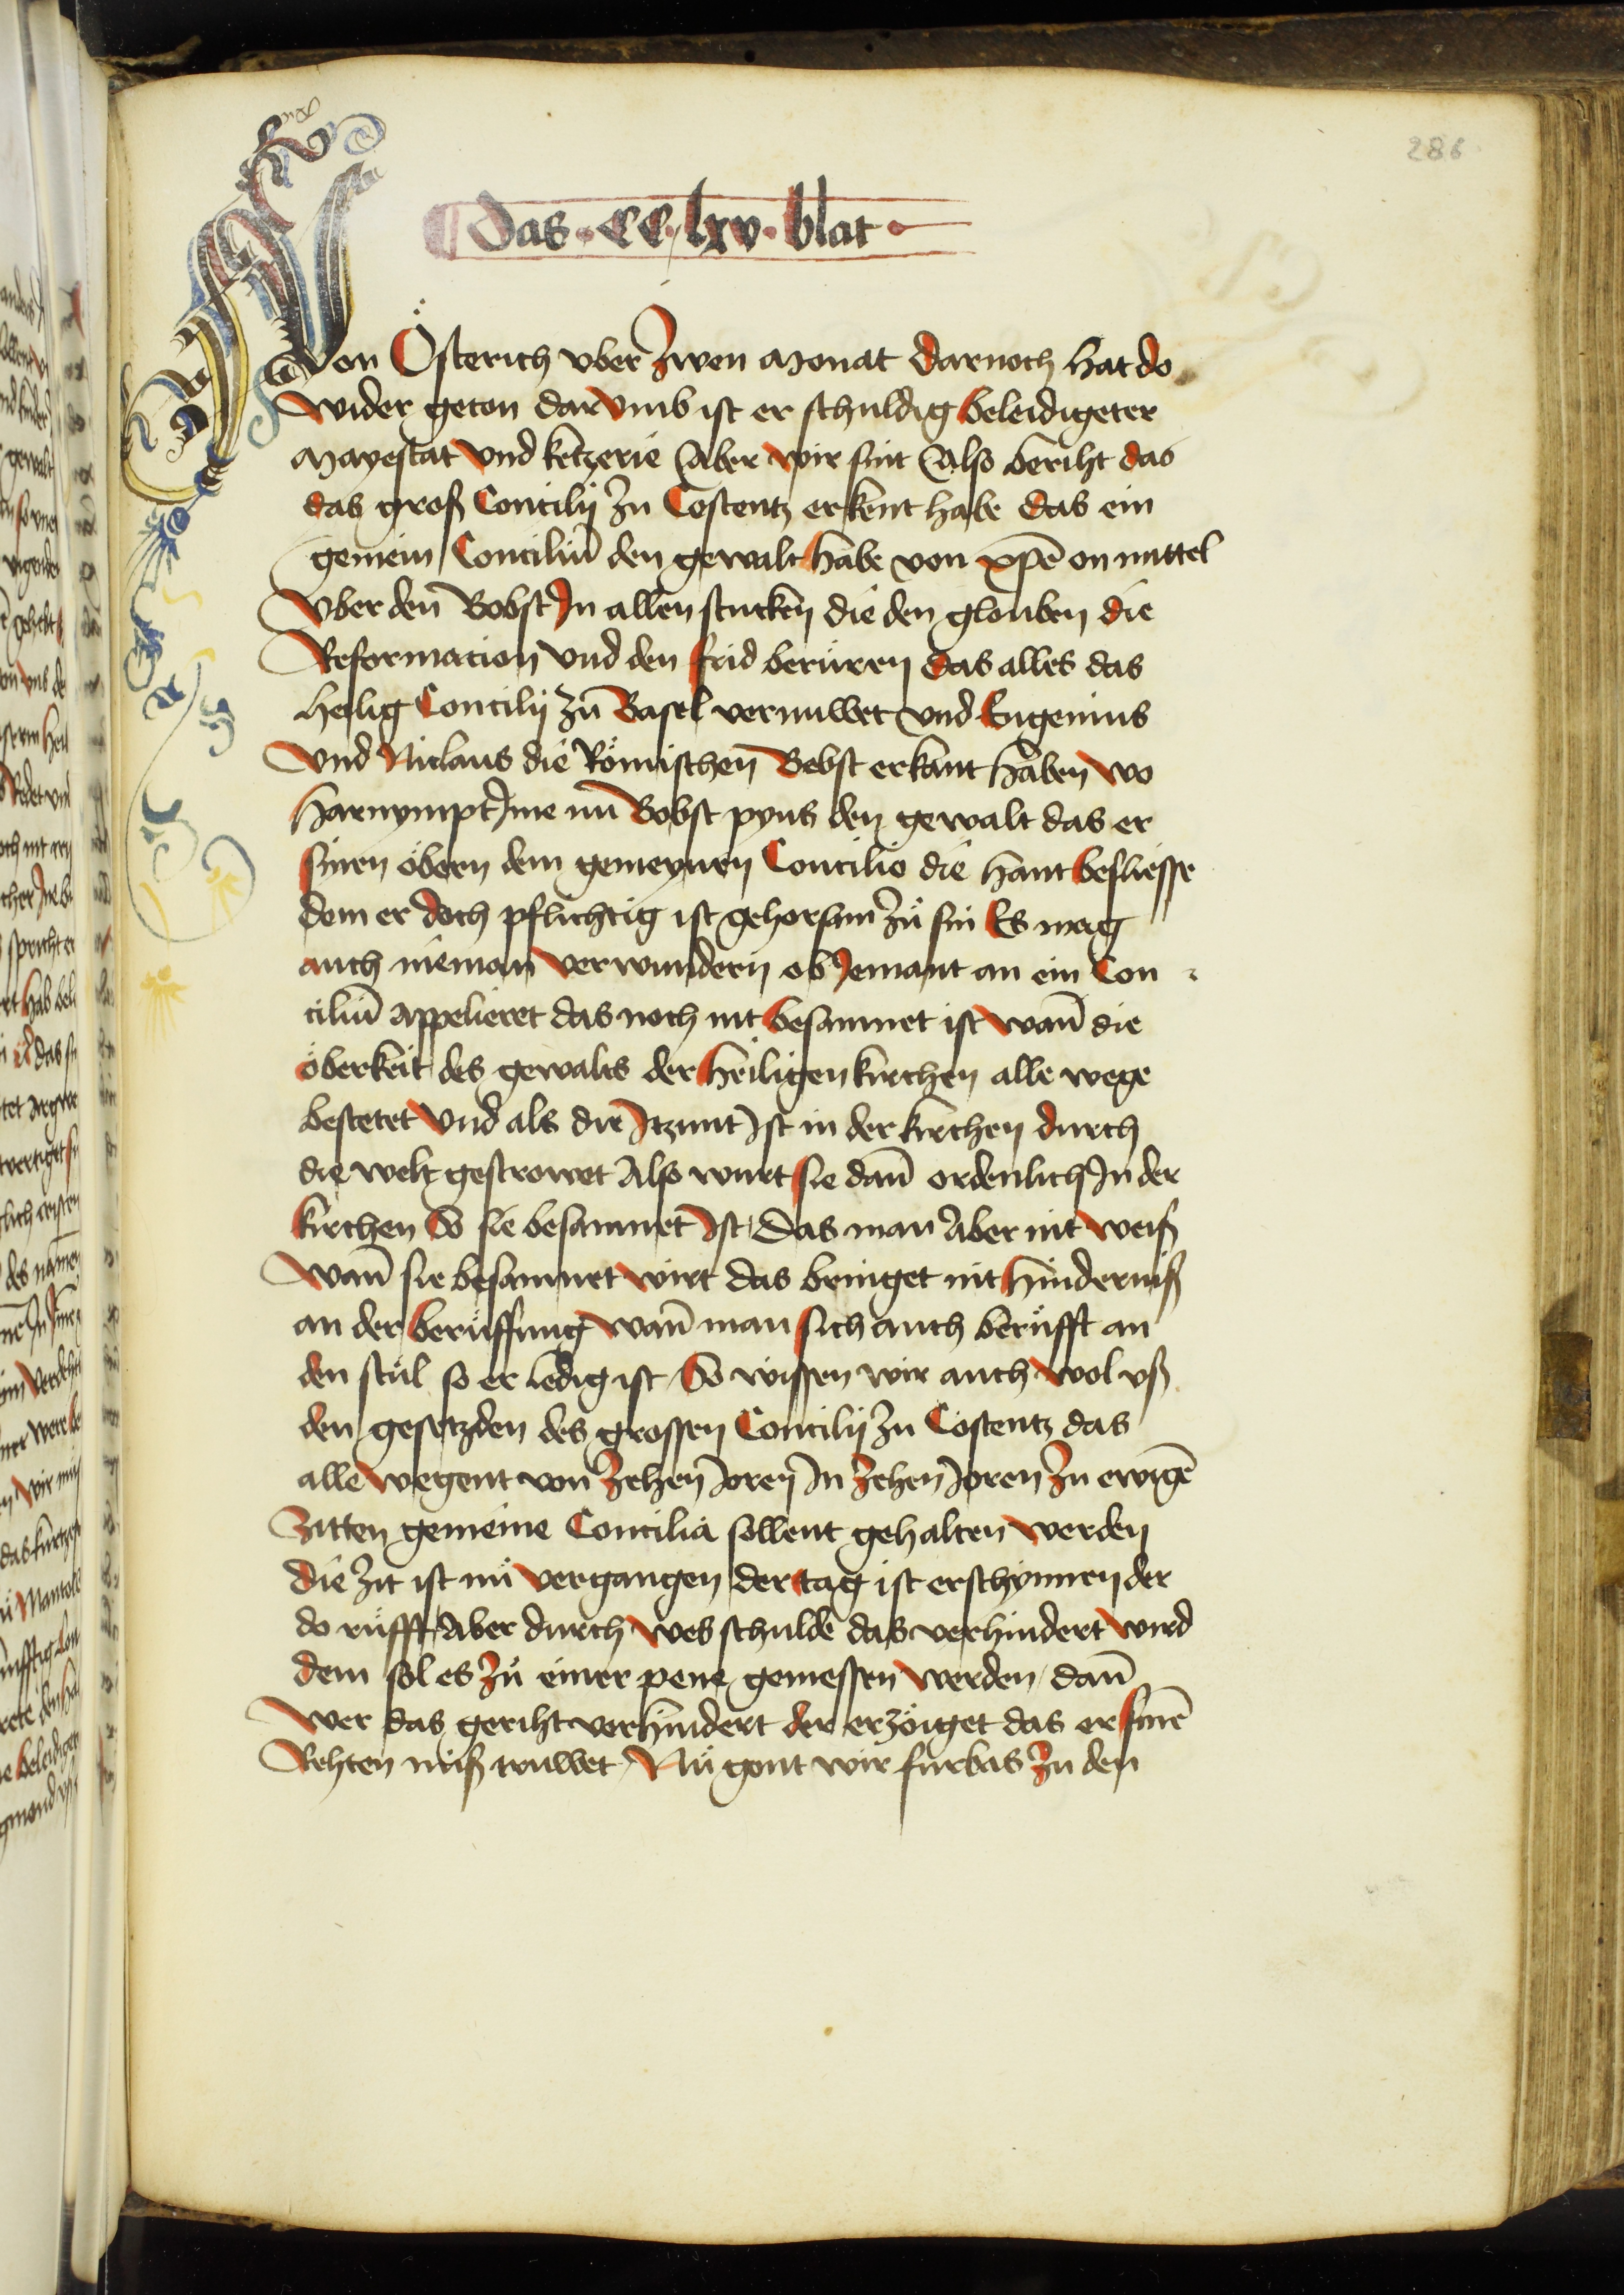 286
Das · CC · lxv · blat ·
Von Österich vber zwen Monat darnoch hat do
wider geton dar vmb ist er schuldig beleidigeter
Mayestat vnd ketzerie Aber wir sint Also beriht das
das groß Concilij zu Costentz erkent habe das ein
gemein Conciliū den gewalt habe von xpē on mittel
vber den Bobst In allen stucken die den glouben die
Reformacion vnd den frid berůren das alles das
heilig Concilij zů Basel vernuwet vnd Eugenius
vnd Niclaus die Römischen Bebst erkant haben wo
harnympt Ime nů Bobst pyus den gewalt das er
sinen öbern dem gemeynen Concilio die hant besliesse
dem er doch pflichtig ist gehorsam zů sin Es mag
auch nieman verwundern ob Iemant an ein Con
ciliū appelieret das noch nit besamnet ist wañ die
öberkeit des gewalts der heiligen kirchen alle wege
bestetet vnd als die Itzunt Ist in der kirchen durch
die welt gestrowet Also wurt sie dañ ordenlich In der
kirchen So sie besamnet Ist Das man Aber nit weiß
wañ sie besamnet wirt das bringet nit hinderniß
an der berůffung wañ man sich auch berůfft an
den stůl so er ledig ist So wissen wir auch wol vß
den gesetzden des grossen Concilij zu Costentz das
alle wegent von zehen Joren In zehen Joren zu ewigē
Zitten gemeine Concilia sollent gehalten werden
die zit ist nů vergangen der tag ist erschynnen der
do růfft Aber durch wes schulde das verhindert wird
dem sol es zů einer pene gemessen werden dañ
wer das geriht verhindert der erzöiget das er sinē
Rehten miß truwet Nů gont wir furbas zu den